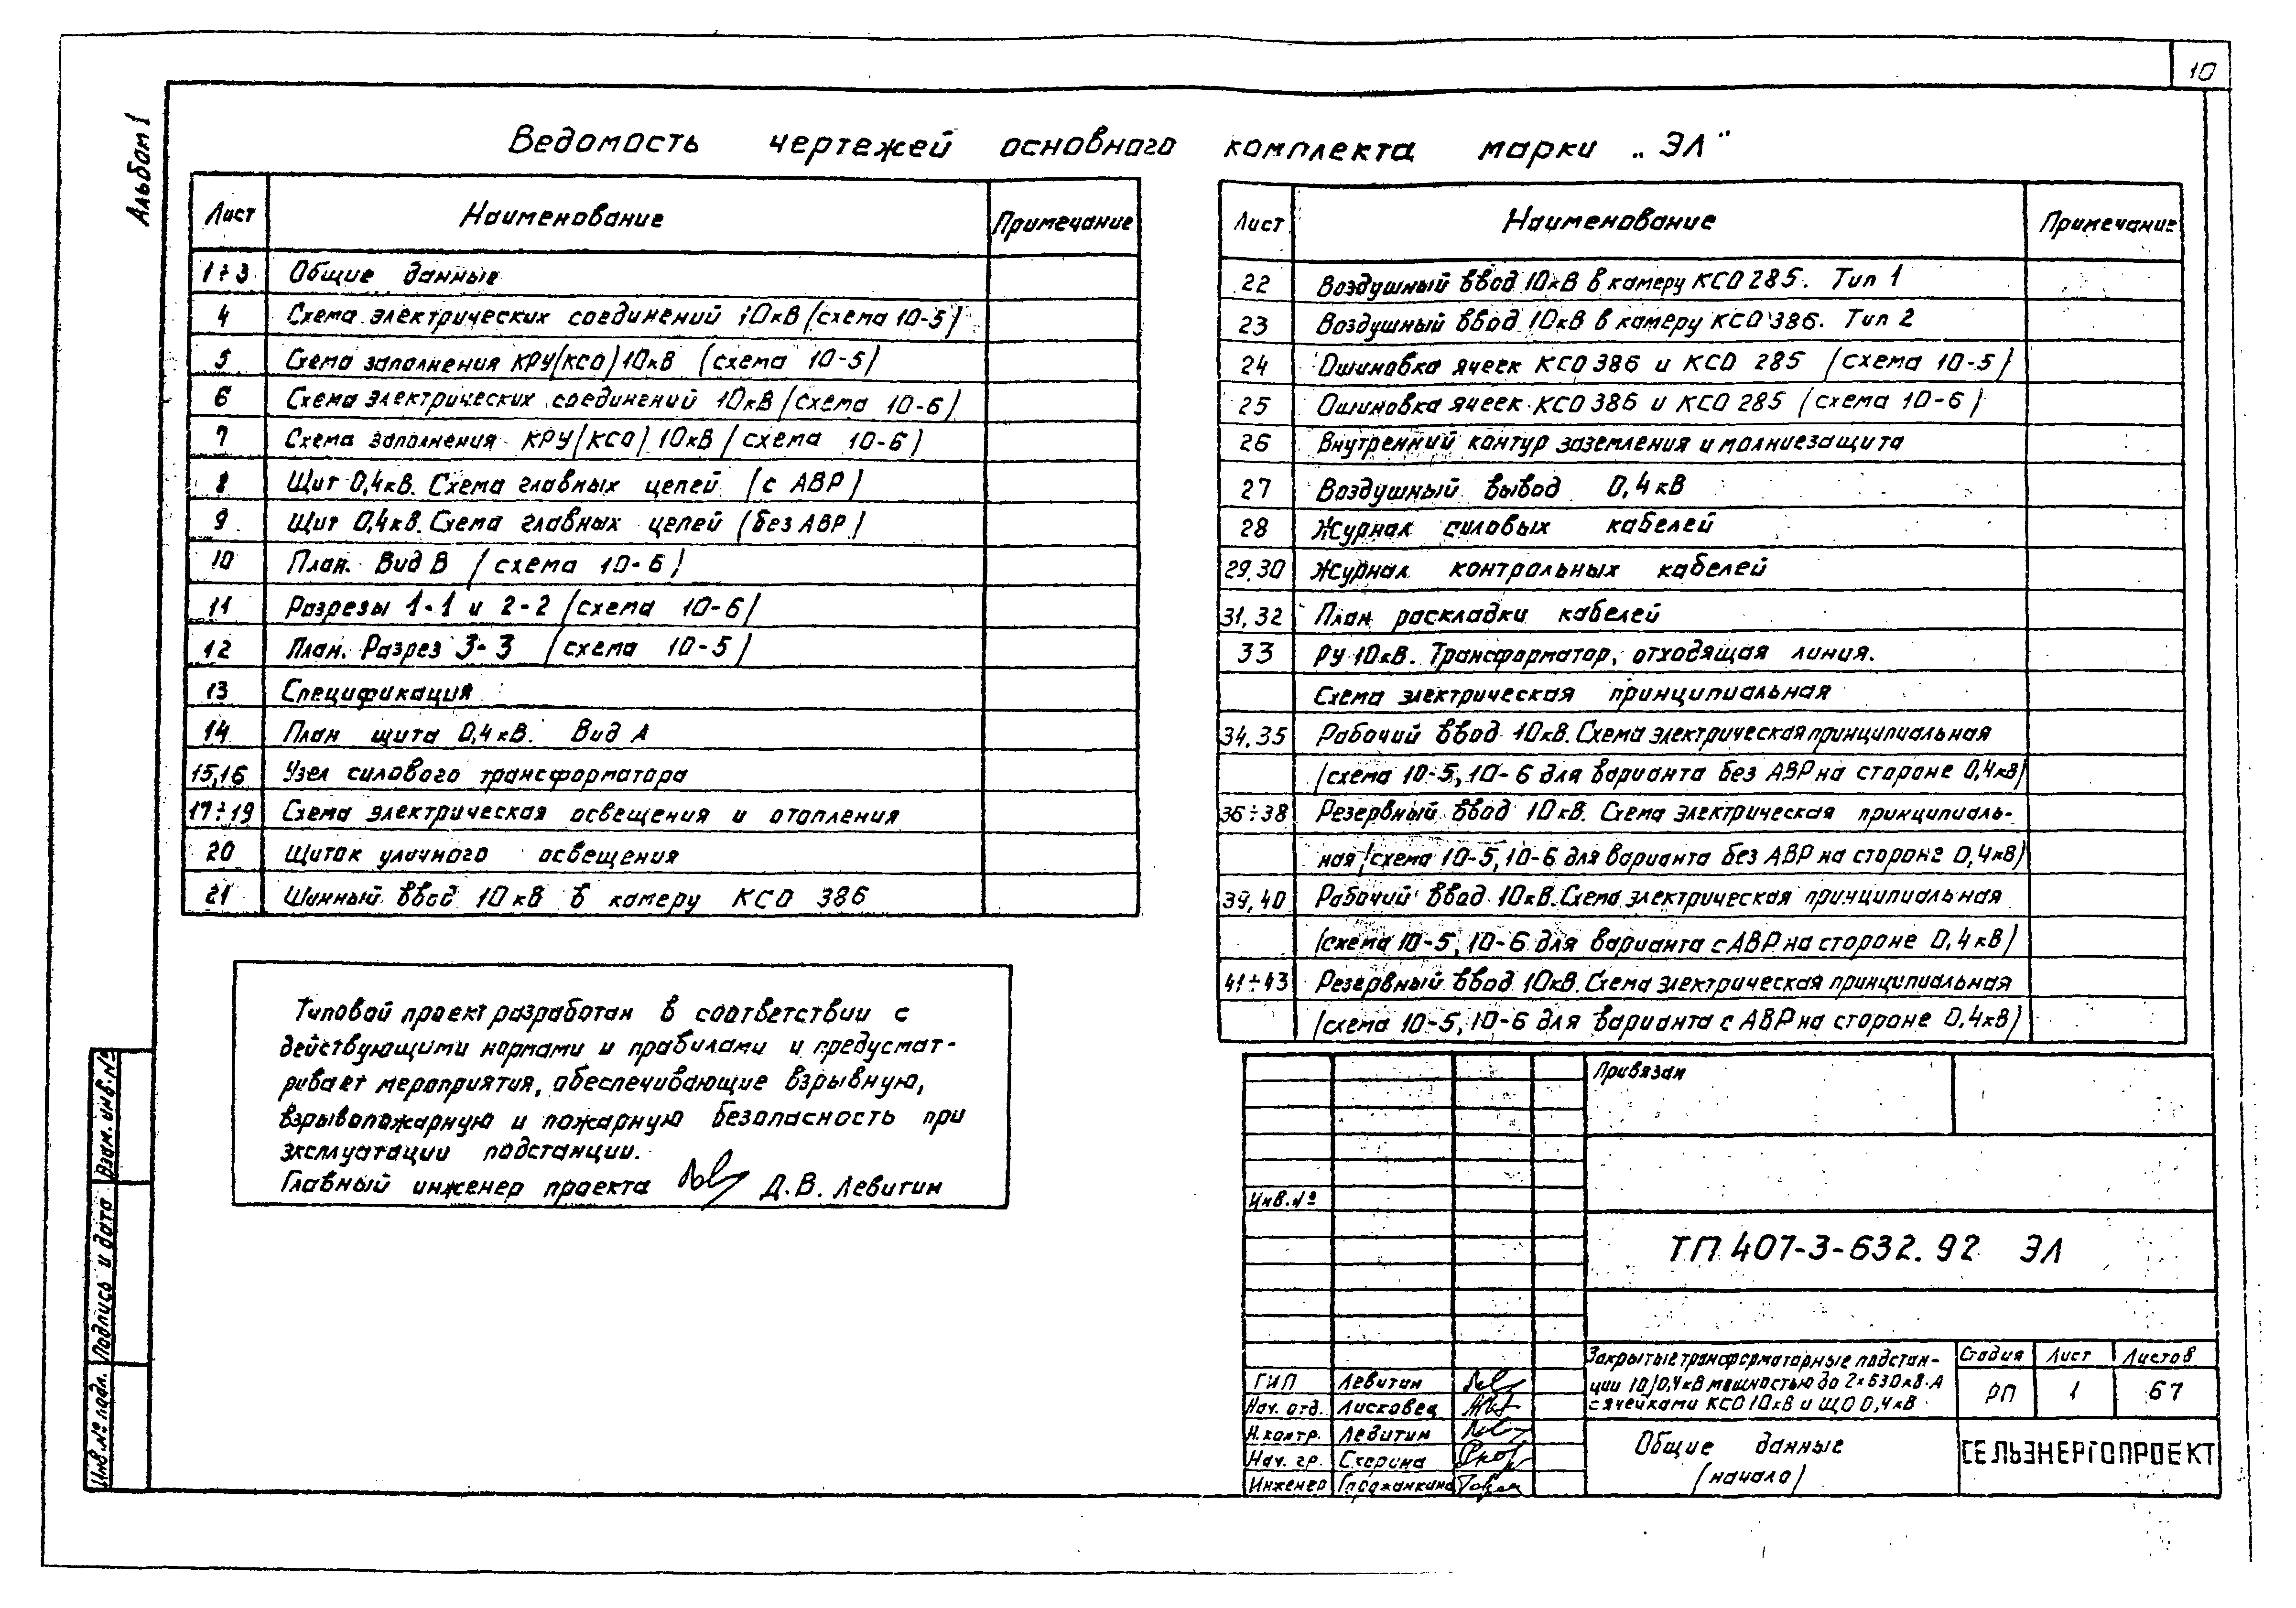 10
Альбом 1
Ведомость чертежей основного комплекта марки „ЭЛ"
Лист Наименование Примечание
1÷3 Общие данные
4 Схема электрических соединений 10кВ (схема 10-5)
5 Схема заполнения КРУ(КСО) 10кВ (схема 10-5)
6 Схема электрических соединений 10кВ (схема 10-6)
7 Схема заполнения КРУ(КСО) 10кВ (схема 10-6)
8 Щит 0,4кВ. Схема главных цепей (с АВР)
9 Щит 0,4кВ. Схема главных цепей (без АВР)
10 План. Вид В (схема 10-6)
11 Разрезы 1-1 и 2-2 (схема 10-6)
12 План. Разрез 3-3 (схема 10-5)
13 Спецификация
14 План щита 0,4кВ. Вид А
15,16 Узел силового трансформатора
17÷19 Схема электрическая освещения и отопления
20 Щиток уличного освещения
21 Шинный ввод 10кВ в камеру КСО 386
Лист Наименование Примечание
22 Воздушный ввод 10кВ в камеру КСО 285. Тип 1
23 Воздушный ввод 10кВ в камеру КСО 386. Тип 2
24 Ошиновка ячеек КСО 386 и КСО 285 (схема 10-5)
25 Ошиновка ячеек КСО 386 и КСО 285 (схема 10-6)
26 Внутренний контур заземления и молниезащита
27 Воздушный вывод 0,4кВ
28 Журнал силовых кабелей
29,30 Журнал контрольных кабелей
31,32 План раскладки кабелей
33 РУ 10кВ. Трансформатор, отходящая линия.
Схема электрическая принципиальная
34,35 Рабочий ввод 10кВ. Схема электрическая принципиальная
(схема 10-5, 10-6 для варианта без АВР на стороне 0,4кВ)
36÷38 Резервный ввод 10кВ. Схема электрическая принципиаль-
ная (схема 10-5, 10-6 для варианта без АВР на стороне 0,4кВ)
39,40 Рабочий ввод 10кВ. Схема электрическая принципиальная
(схема 10-5, 10-6 для варианта с АВР на стороне 0,4кВ)
41÷43 Резервный ввод 10кВ. Схема электрическая принципиальная
(схема 10-5, 10-6 для варианта с АВР на стороне 0,4кВ)
Типовой проект разработан в соответствии с
действующими нормами и правилами и предусмат-
ривает мероприятия, обеспечивающие взрывную,
взрывопожарную и пожарную безопасность при
эксплуатации подстанции.
Главный инженер проекта Д.В. Левитин
Взам. инв.№
Подпись и дата
Инв.№ подл.
Привязан
Инв.№
ТП 407-3-632.92 ЭЛ
ГИП Левитин
Нач. отд. Лисковец
Н.контр. Левитин
Нач. гр. Скорина
Инженер
Закрытые трансформаторные подстан-
ции 10/0,4кВ мощностью до 2×630кВ·А
с ячейками КСО 10кВ и ЩО 0,4кВ
Стадия Лист Листов
РП 1 67
Общие данные
(начало)
СЕЛЬЭНЕРГОПРОЕКТ